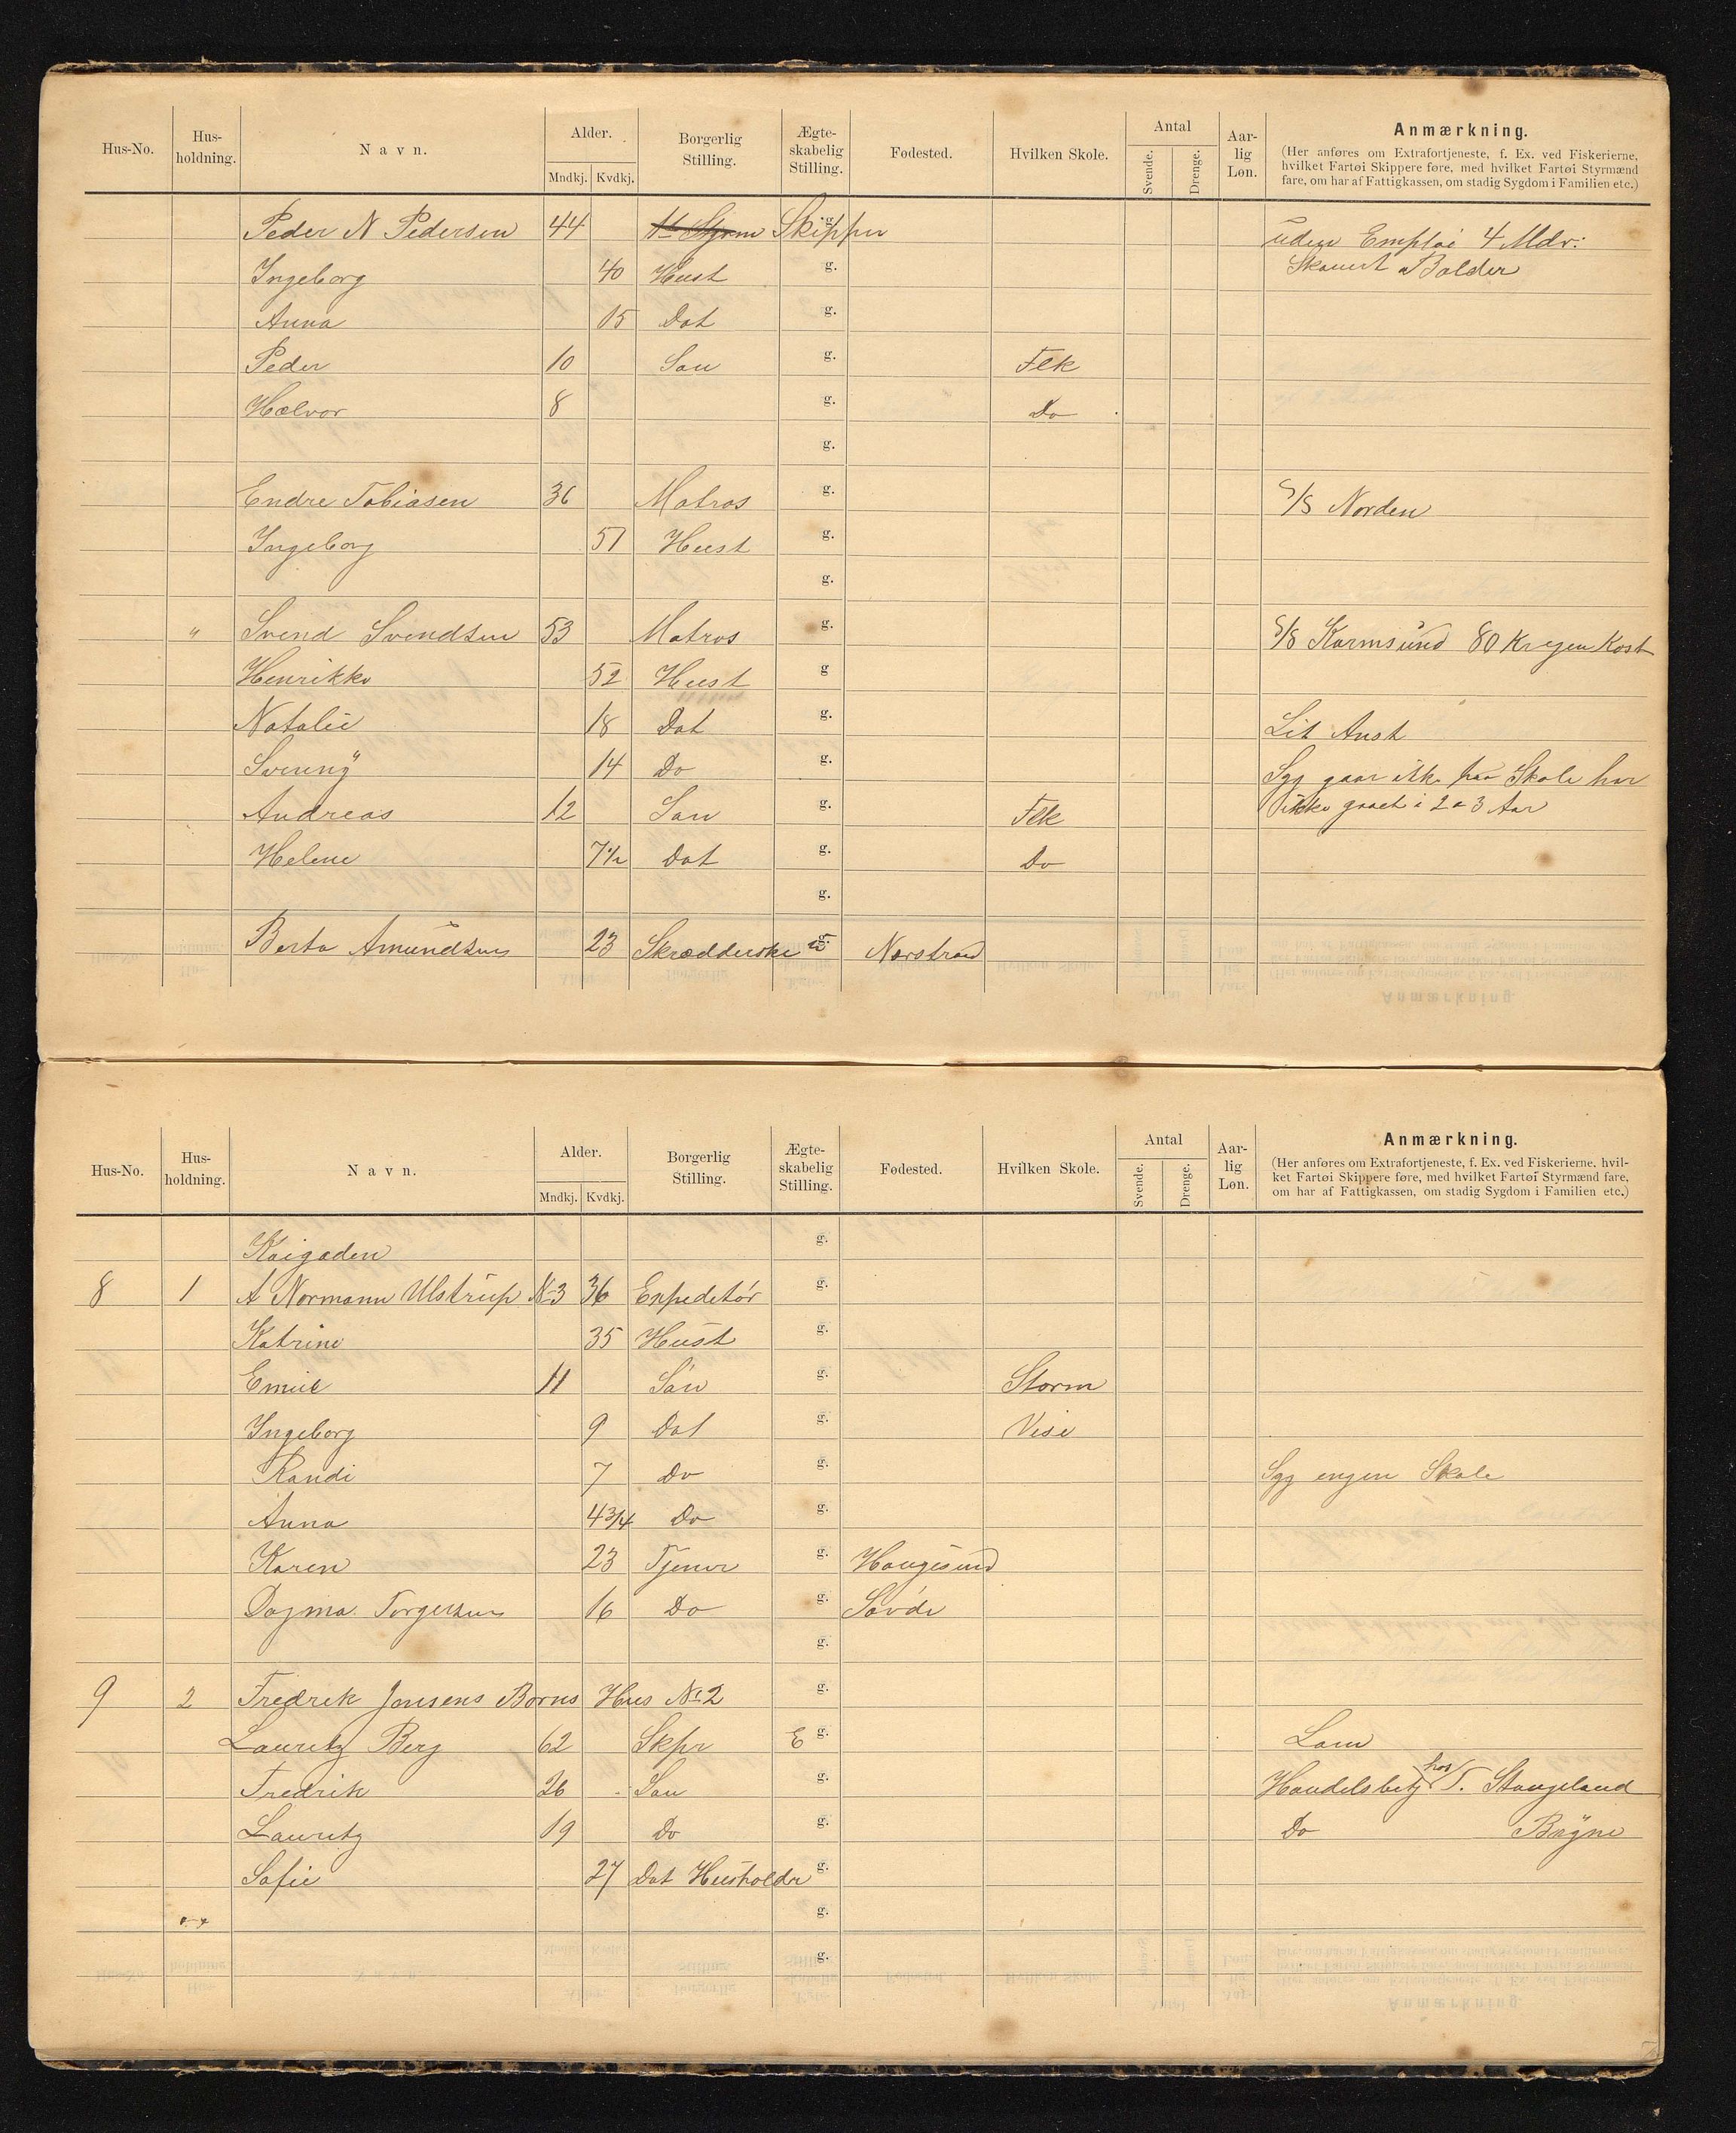 Hus-No. Hus-holdning. Navn. Alder. Mndkj. Kvdkj. Borgerlig Stilling. Ægte-skabelig Stilling. Fødested. Hvilken Skole. Antal Svende. Drenge. Aar-lig Løn. Anmærkning.
(Her anføres om Extrafortjeneste, f. Ex. ved Fiskerierne,
hvilket Fartøi Skippere føre, med hvilket Fartøi Styrmænd
fare, om har af Fattigkassen, om stadig Sygdom i Familien etc.)
Peder N Pedersen 44 Skipper g. uden Emploi 4 Mdr:
Ingeborg 40 Hust g. Skonert Balder
Anna 15 Dat g.
Peder 10 Søn g. Flk
Halvor 8 g. Do
g.
Endre Tobiasen 36 Matros g. S/S Norden
Ingeborg 51 Hust g.
g.
" Svend Svendsen 53 Matros g. S/S Karmsund 80 Kr egen Kost
Henrikke 52 Hust g
Natalie 18 Dat g. Lit Anst
14 Do g. Syg gaar ikke paa Skole har
Andreas 12 Søn g. Flk ikke gaaet i 2 a 3 Aar
Helene 7½ Dat g. Do
g.
Berta Amundsen 23 Skrædderske g. Nærstrand
Hus-No. Hus-holdning. Navn. Alder. Mndkj. Kvdkj. Borgerlig Stilling. Ægte-skabelig Stilling. Fødested. Hvilken Skole. Antal Svende. Drenge. Aar-lig Løn. Anmærkning.
(Her anføres om Extrafortjeneste, f. Ex. ved Fiskerierne, hvil-
ket Fartøi Skippere føre, med hvilket Fartøi Styrmænd fare,
om har af Fattigkassen, om stadig Sygdom i Familien etc.)
Kaigaden g.
8 1 A Normann Ulstrup No 3 36 Expeditør g.
Katrine 35 Hust g.
Emil 11 Søn g. Storm
Ingeborg 9 Dat g. Vise
Randi 7 Do g. Syg engen Skole
Anna 4 3/4 Do g.
Karen 23 Tjener g. Haugesund
Dagma Torgersen 16 Do g. Søvde
g.
9 2 Fredrik Jensens Børns Hus No 2 g.
Lauritz Berg 62 Skpr E g. Lam
Fredrik 26 Søn g. Handelsbetj hos T. Stangeland
Lauritz 19 Do g. Do Bøgne
Sofie 27 Dat Husholder g.
g.
g.